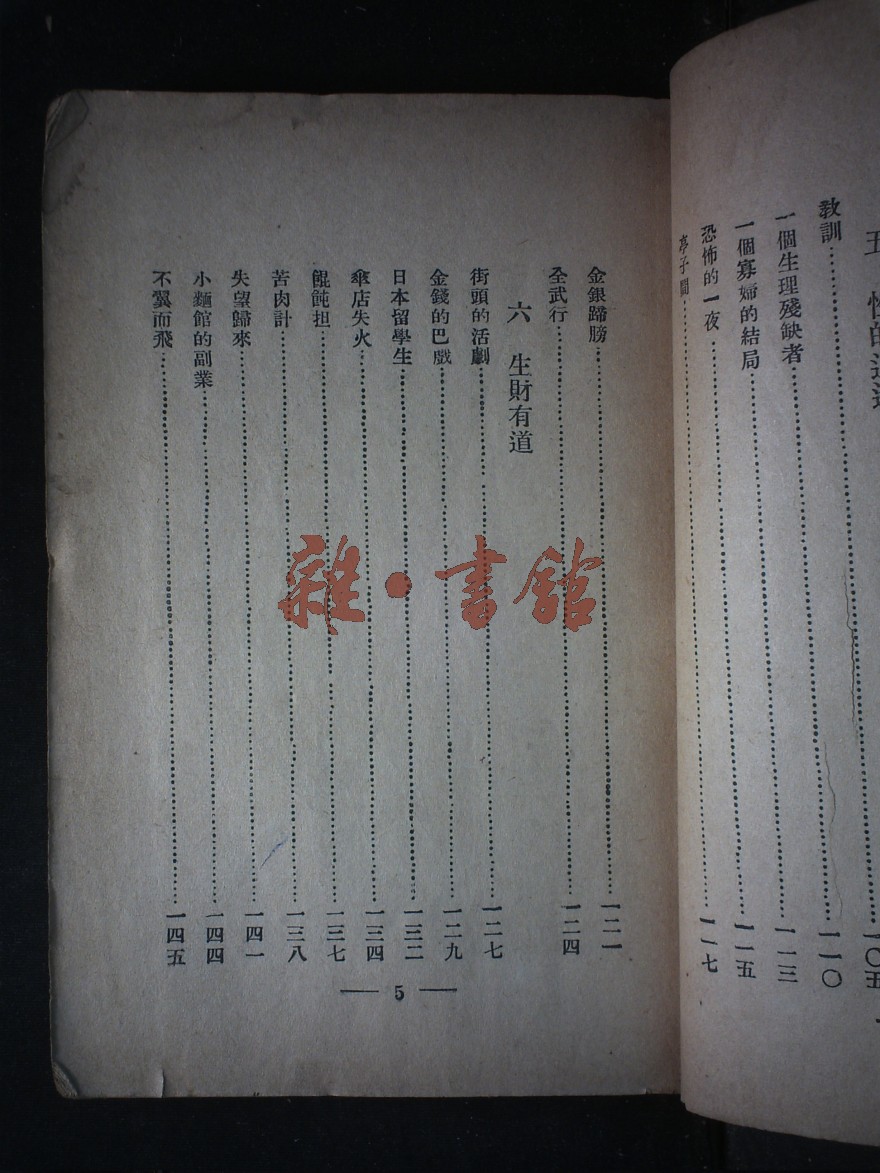 教訓……一一〇
一個生理殘缺者……一一三
一個寡婦的結局……一一五
恐怖的一夜……一一七
亭子間
金銀蹄膀……一二一
全武行……一二四
六 生財有道
街頭的活劇……一二七
金錢的巴戲……一二九
日本留學生……一三二
傘店失火……一三四
餛飩担……一三七
苦肉計……一三八
失望歸來……一四一
小麵館的副業……一四四
不翼而飛……一四五
— 5 —
雜·書館